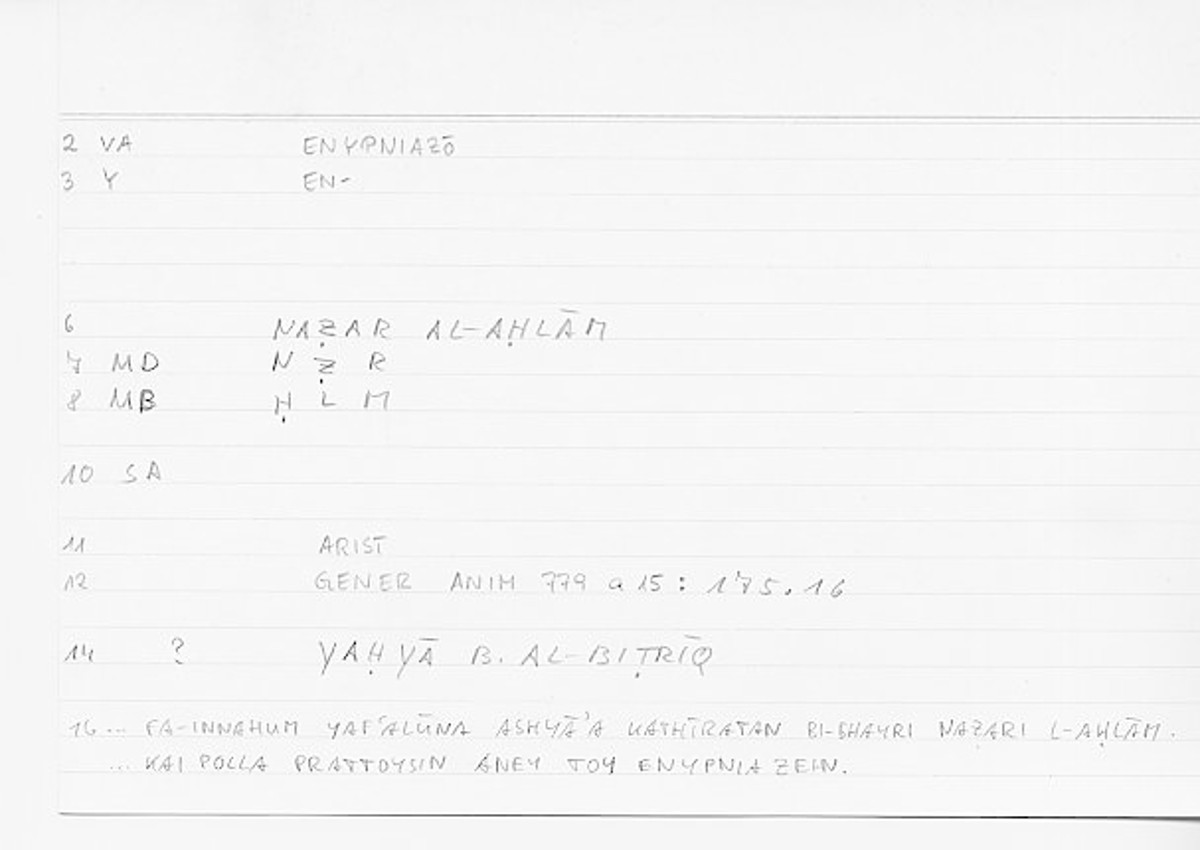 2 VA ENYPNIAZŌ
3 Y EN-
6 NAẒAR AL-AḤLĀM
7 MD N Ẓ R
8 MB Ḥ L M
10 SA
11 ARIST
12 GENER ANIM 779 a 15 : 175.16
14 ? YAḤYĀ B. AL-BIṬRĪQ
16 ... FA-INNAHUM YAFʿALŪNA ASHYĀʾA KATHĪRATAN BI-GHAYRI NAẒARI L-AḤLĀM.
... KAI POLLA PRATTOYSIN ANEY TOY ENYPNIAZEIN.